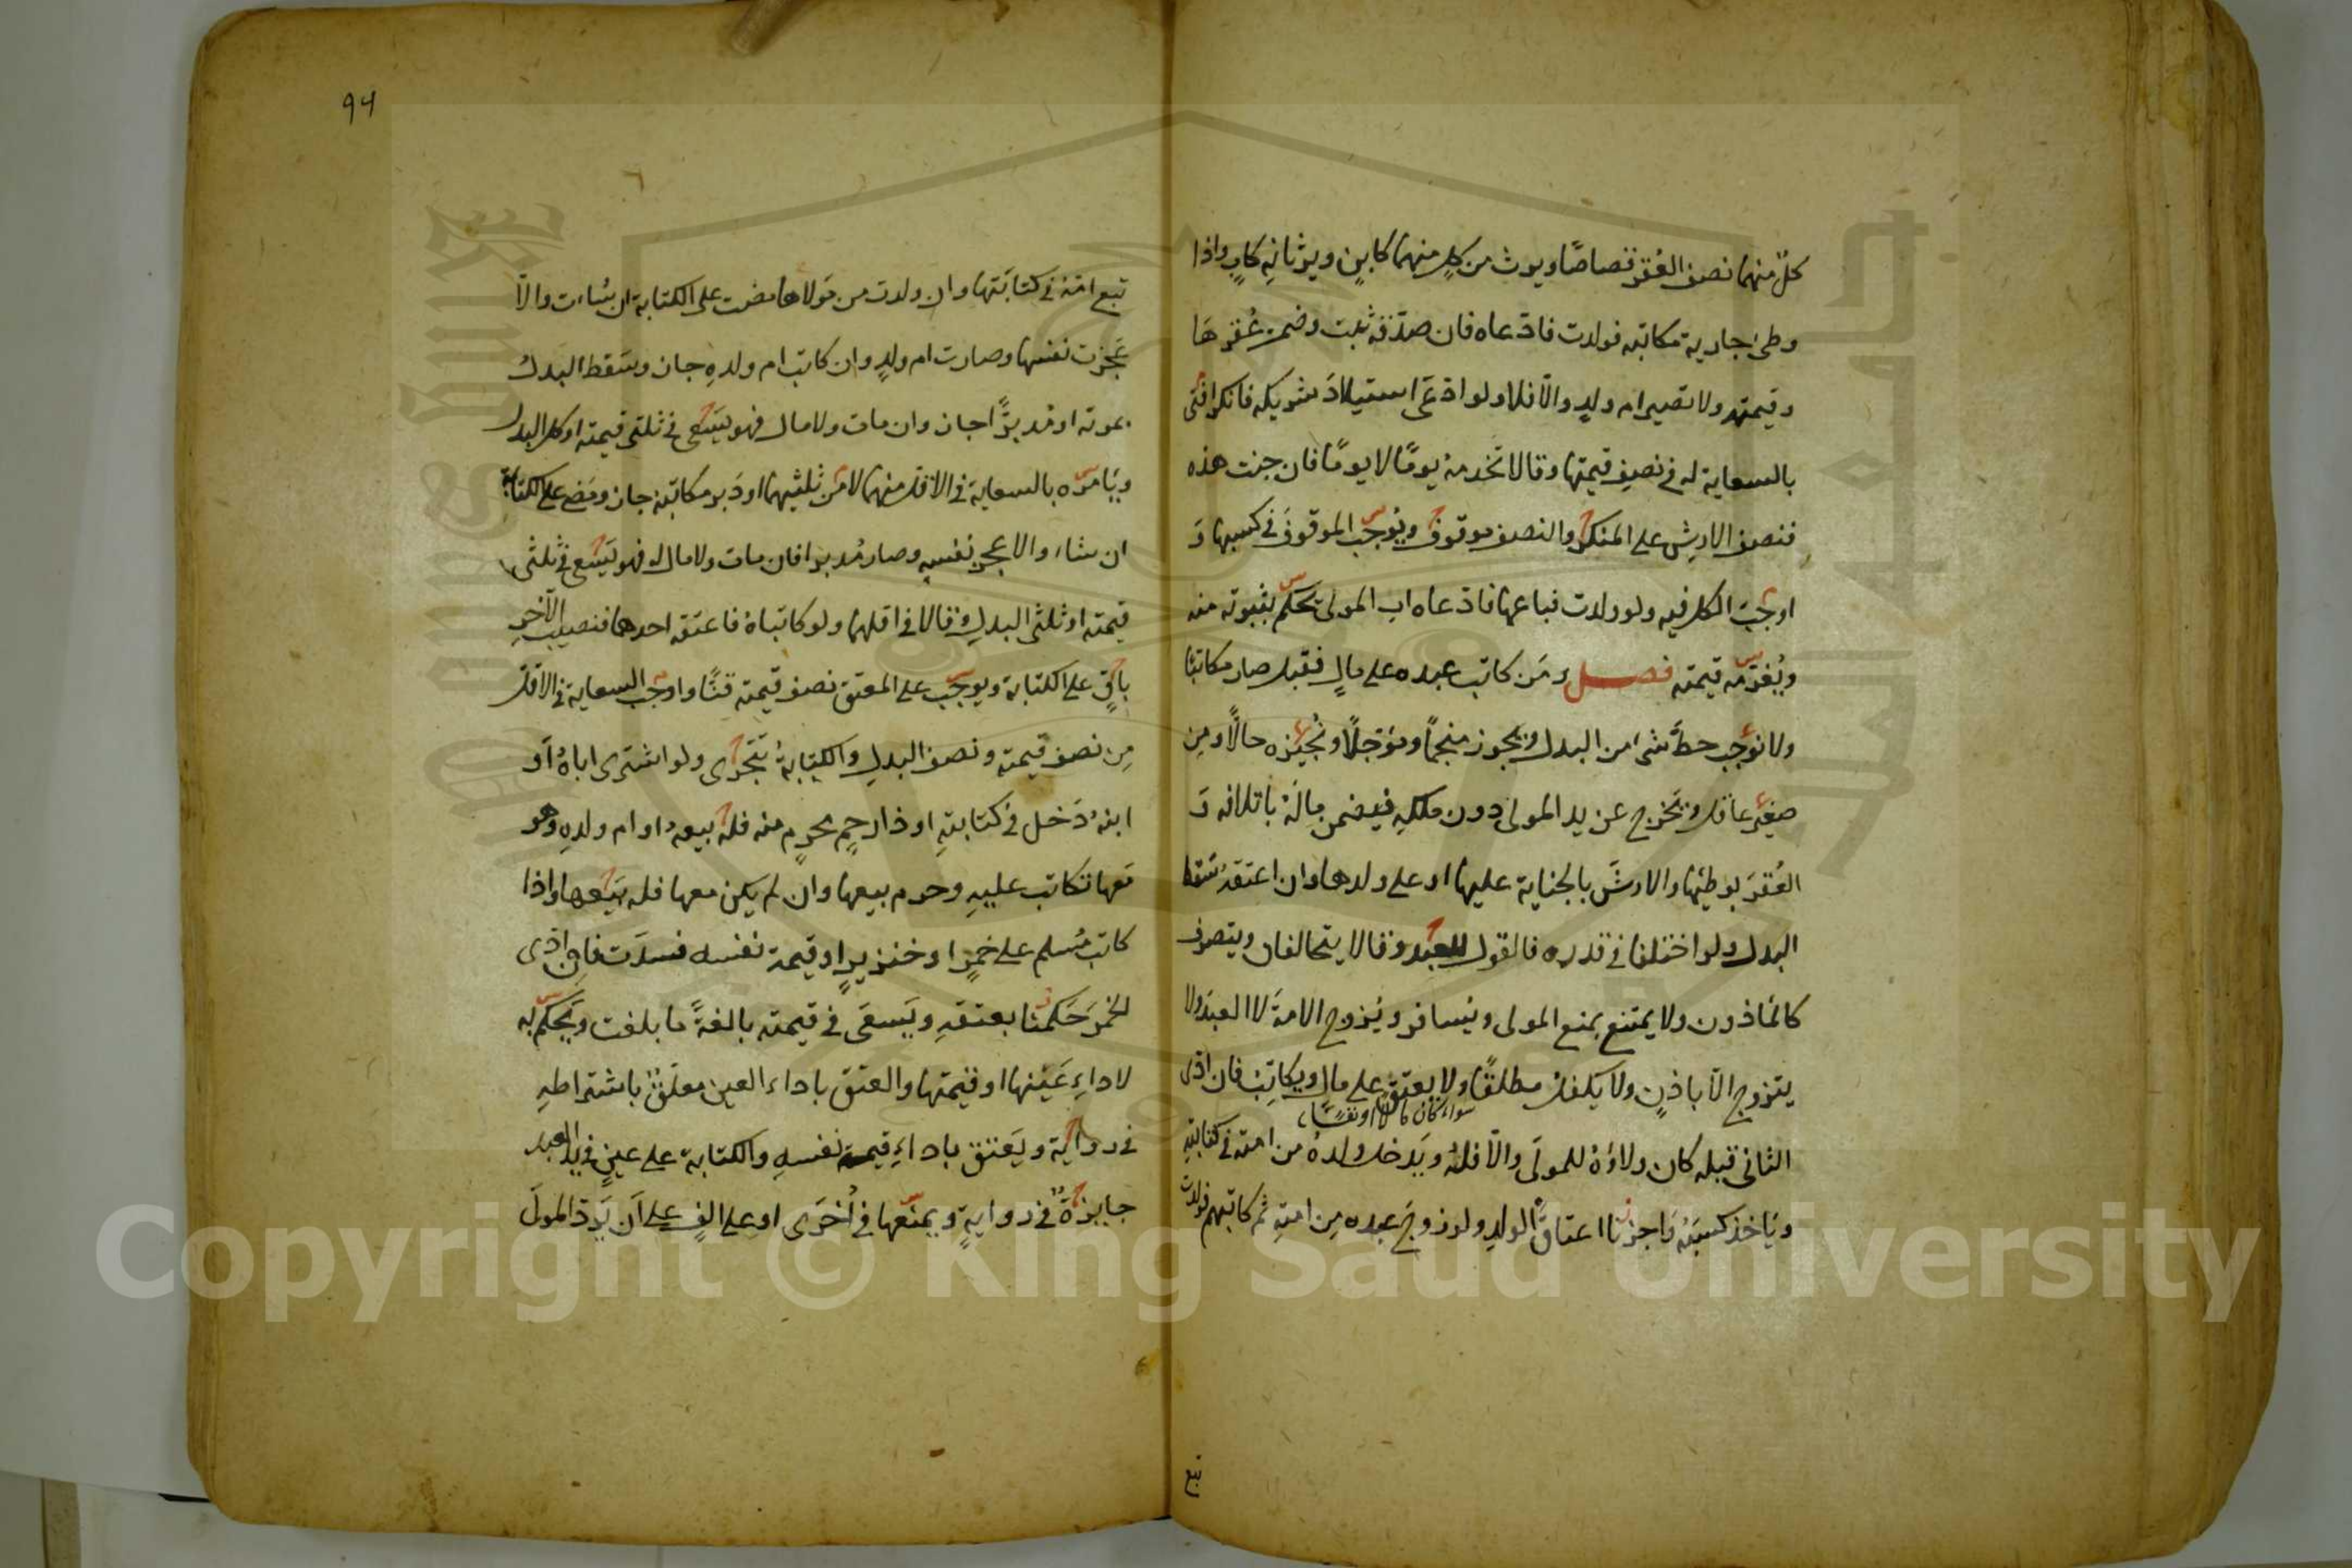 كلٌ منهما نصف العُقر قصاصًا ويرث من كلٍ منهما كابنٍ ويرثانه كابٍ واذا
وطئ جارية مكاتبه فولدت فادّعاه فان صدّقه ثبت وضمن عُقرهَا
وقيمته ولا تصير ام ولدٍ والّا فلا ولو ادّعَى استيلادَ شريكه فانكر افتى
بالسعاية له في نصف قيمتها وقالا تخدمهُ يومًا لا يومًا فان جنت هذه
فنصف الارش على المنكر والنصف موقوف ويُوجبُ الموقوفَ في كسبها وَ
اوجبَ الكل فيه ولو ولدت فباعها فادّعاه اب المولى يحكم بثبوته منه
ويُغرمّه قيمته فصل ومَن كاتب عبده على مالٍ فقبل صار مكاتبًا
ولا نوجب حطّ شئ من البدل ويجوز منجمًا ومؤجلًا ونُجيزه حالًّا ومِن
صغيرٍ عاقل ويخرج عن يد المولى دون ملكهِ فيضمن مالَهُ باتلافه وَ
العُقرَ بوطئها والارشَ بالجناية عليها او على ولدها وان اعتقهُ سَقط
البدل ولو اختلفا في قدره فالقول للعبد وقالا يتحالفان ويتصرف
كالمأذون ولا يمتنع بمنع المولى ويسافر ويُزوج الامةَ لا العبدَ ولا
يتزوج الّا باذنٍ ولا يكفل مطلقًا ولا يعتق على مال ويكاتِبُ فان ادّى
سواء كان مالاً او نفسًا
الثاني قبله كان ولاؤهُ للمولَى والّا فلهُ ويَدخل ولدهُ من امته في كتابتهِ
ويَاخذ كسبَهُ وَاجزنا اعتاقَ الولدِ ولو زوجَ عبده مِن امتهِ ثم كاتبهم فولدت
تبع
٩٤
تبع امّهُ في كتابَتها وان ولدت من مَولاها مضت على الكتابة ان شاءت والّا
عَجزت نفسها وصارت ام ولدٍ وان كاتب ام ولدهِ جاز وسَقط البدل
بموته او مُدبرًا جاز وان مات ولا مال فهو يَسعَى في ثلثى قيمته او كل البدل
ويَامرُه بالسعاية في الاقل منهما لا مِن ثلثيهما او دَبر مكاتبهُ جاز ومَضى على الكتابة
ان شاء والا عجز نفسهِ وصار مُدبرا فان مات ولا مال له فهو يَسعى في ثلثى
قيمته او ثلثى البدلِ وقالا في اقلهما ولو كاتباهُ فاعتقه احدهما فنصيبُ الآخرِ
باقٍ على الكتابة ويوجب على المعتق نصف قيمته قنًّا واوجب السعاية في الاقل
مِن نصف قيمته ونصف البدلِ والكتابةُ تتجزى ولو اشترى اباهُ اَو
ابنهُ دَخل في كتابتهِ او ذا رحِمٍ محرمٍ منه فله بيعه او ام ولدهِ وهو
مَعها تكاتب عليهِ وحرم بيعها وان لم يكن معها فله بَيعها واذا
كاتب مُسلم على خمرٍ او خنزيرٍ او قيمة نفسه فسدَت فان ادّى
الخمرَ حَكمنا بعتقهِ ويَسعَى في قيمته بالغةً ما بلغت ويَحكم به
لاداءِ عَينها او قيمتها والعتق باداء العين معلّقٌ باشتراطهِ
في رواية ويَعتق باداءِ قيمة نفسهِ والكتابة على عينٍ في يد العبد
جايزةٌ في روايةٍ ويمنعها في اُخرَى او على الفٍ على اَن يَردّ المولَى